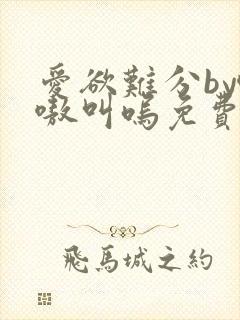 愛欲難分by
嗷叫嗚免費
飛馬城之約